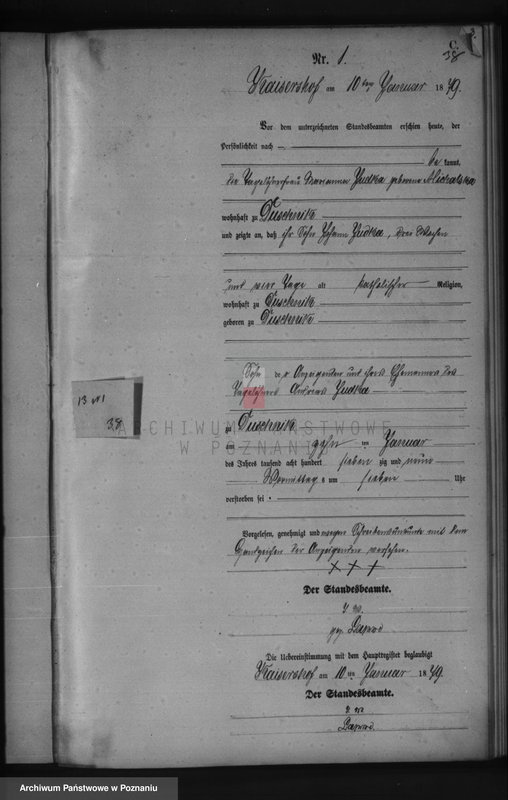 C.
38
Nr. 1.
Kaisershof am 10ten Januar 1879.
Vor dem unterzeichneten Standesbeamten erschien heute, der
Persönlichkeit nach
be kannt,
die Tagelöhnerfrau Marianna Judka geborene Michalska
wohnhaft zu Duschnik
und zeigte an, daß ihr Sohn Johann Judka, drei Wochen
und vier Tage alt katholischer Religion,
wohnhaft zu Duschnik
geboren zu Duschnik
Sohn der Anzeigenden und ihres Ehemannes des
Tagelöhners Andreas Judka
13 N 1
38
zu Duschnik
am zehn ten Januar
des Jahres tausend acht hundert sieben zig und neun
Vormittag s um sieben Uhr
verstorben sei
Vorgelesen, genehmigt und wegen Schreibensunkunde mit dem
Handzeichen der Anzeigenden versehen.
+ + +
Der Standesbeamte.
gez.
Die Uebereinstimmung mit dem Hauptregister beglaubigt
Kaisershof am 10 ten Januar 1879.
Der Standesbeamte.
ARCHIWUM PAŃSTWOWE
W POZNANIU
Archiwum Państwowe w Poznaniu